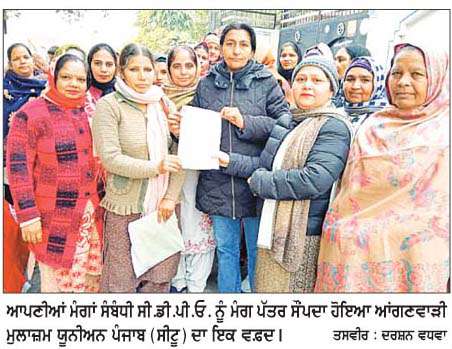 ਆਪਣੀਆਂ ਮੰਗਾਂ ਸੰਬੰਧੀ ਸੀ.ਡੀ.ਪੀ.ਓ. ਨੂੰ ਮੰਗ ਪੱਤਰ ਸੌਂਪਦਾ ਹੋਇਆ ਆਂਗਣਵਾੜੀ
ਮੁਲਾਜ਼ਮ ਯੂਨੀਅਨ ਪੰਜਾਬ (ਸੀਟੂ) ਦਾ ਇਕ ਵਫ਼ਦ। ਤਸਵੀਰ : ਦਰਸ਼ਨ ਵਧਵਾ